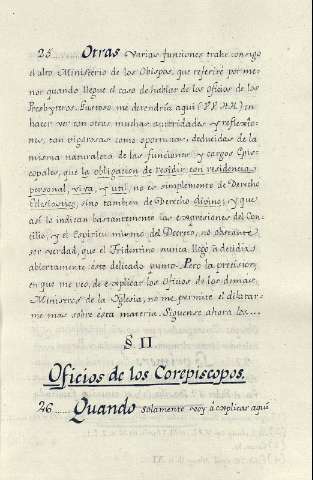 25...... Otras varias funciones trahe consigo
el alto Ministerio de los Obispos, que referiré por me-
nor quando llegue el caso de hablar de los oficios de los
Presbyteros. Gustoso me detendría aqui (V.V. HH.) en
hacer ver con otras muchas autoridades y reflexio-
nes, tan vigorosas como oportunas, deducidas de la
misma naturaleza de las funciones y cargos Epis-
copales, que la obligacion de residir con residencia
personal, viva, y util, no es simplemente de Derecho
Eclesiastico, sino tambien de Derecho divino; y que
así lo indican bastantemente las expresiones del Con-
cilio, y el Espiritu mismo del Decreto, no obstante
ser verdad, que el Tridentino nunca llegó a decidir
abiertamente este delicado punto. Pero la precision,
en que me veo, de explicar los Oficios de los demas
Ministros de la Iglesia, no me permite el dilatar-
me mas sobre esta materia. Siguense ahora los...
§ II
Oficios de los Corepiscopos.
26...... Quando solamente voy á explicar aquí